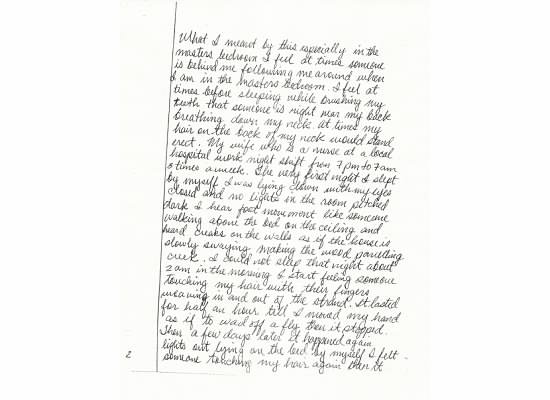 What I meant by this especially in the
masters bedroom I feel at times someone
is behind me following me around when
I am in the masters bedroom. I feel at
times before sleeping while brushing my
teeth that someone is right near my back
breathing down my neck at times my
hair on the back of my neck would stand
erect. My wife who is a nurse at a local
hospital work night shift from 7pm to 7am
3 times a week. The very first night I slept
by myself I was lying down with my eyes
closed and no lights in the room pitched
dark I hear foot movement like someone
walking above the bed on the ceiling and
heard creaks on the walls as if the house is
slowly swaying making the wood panelling
creek. I could not sleep that night about
2am in the morning I start feeling someone
touching my hair with their fingers
weaving in and out of the strand. It lasted
for half an hour till I moved my hand
as if to wad off a fly then it stopped.
Then a few days later it happened again
lights out lying on the bed by myself I felt
someone touching my hair again then it
2